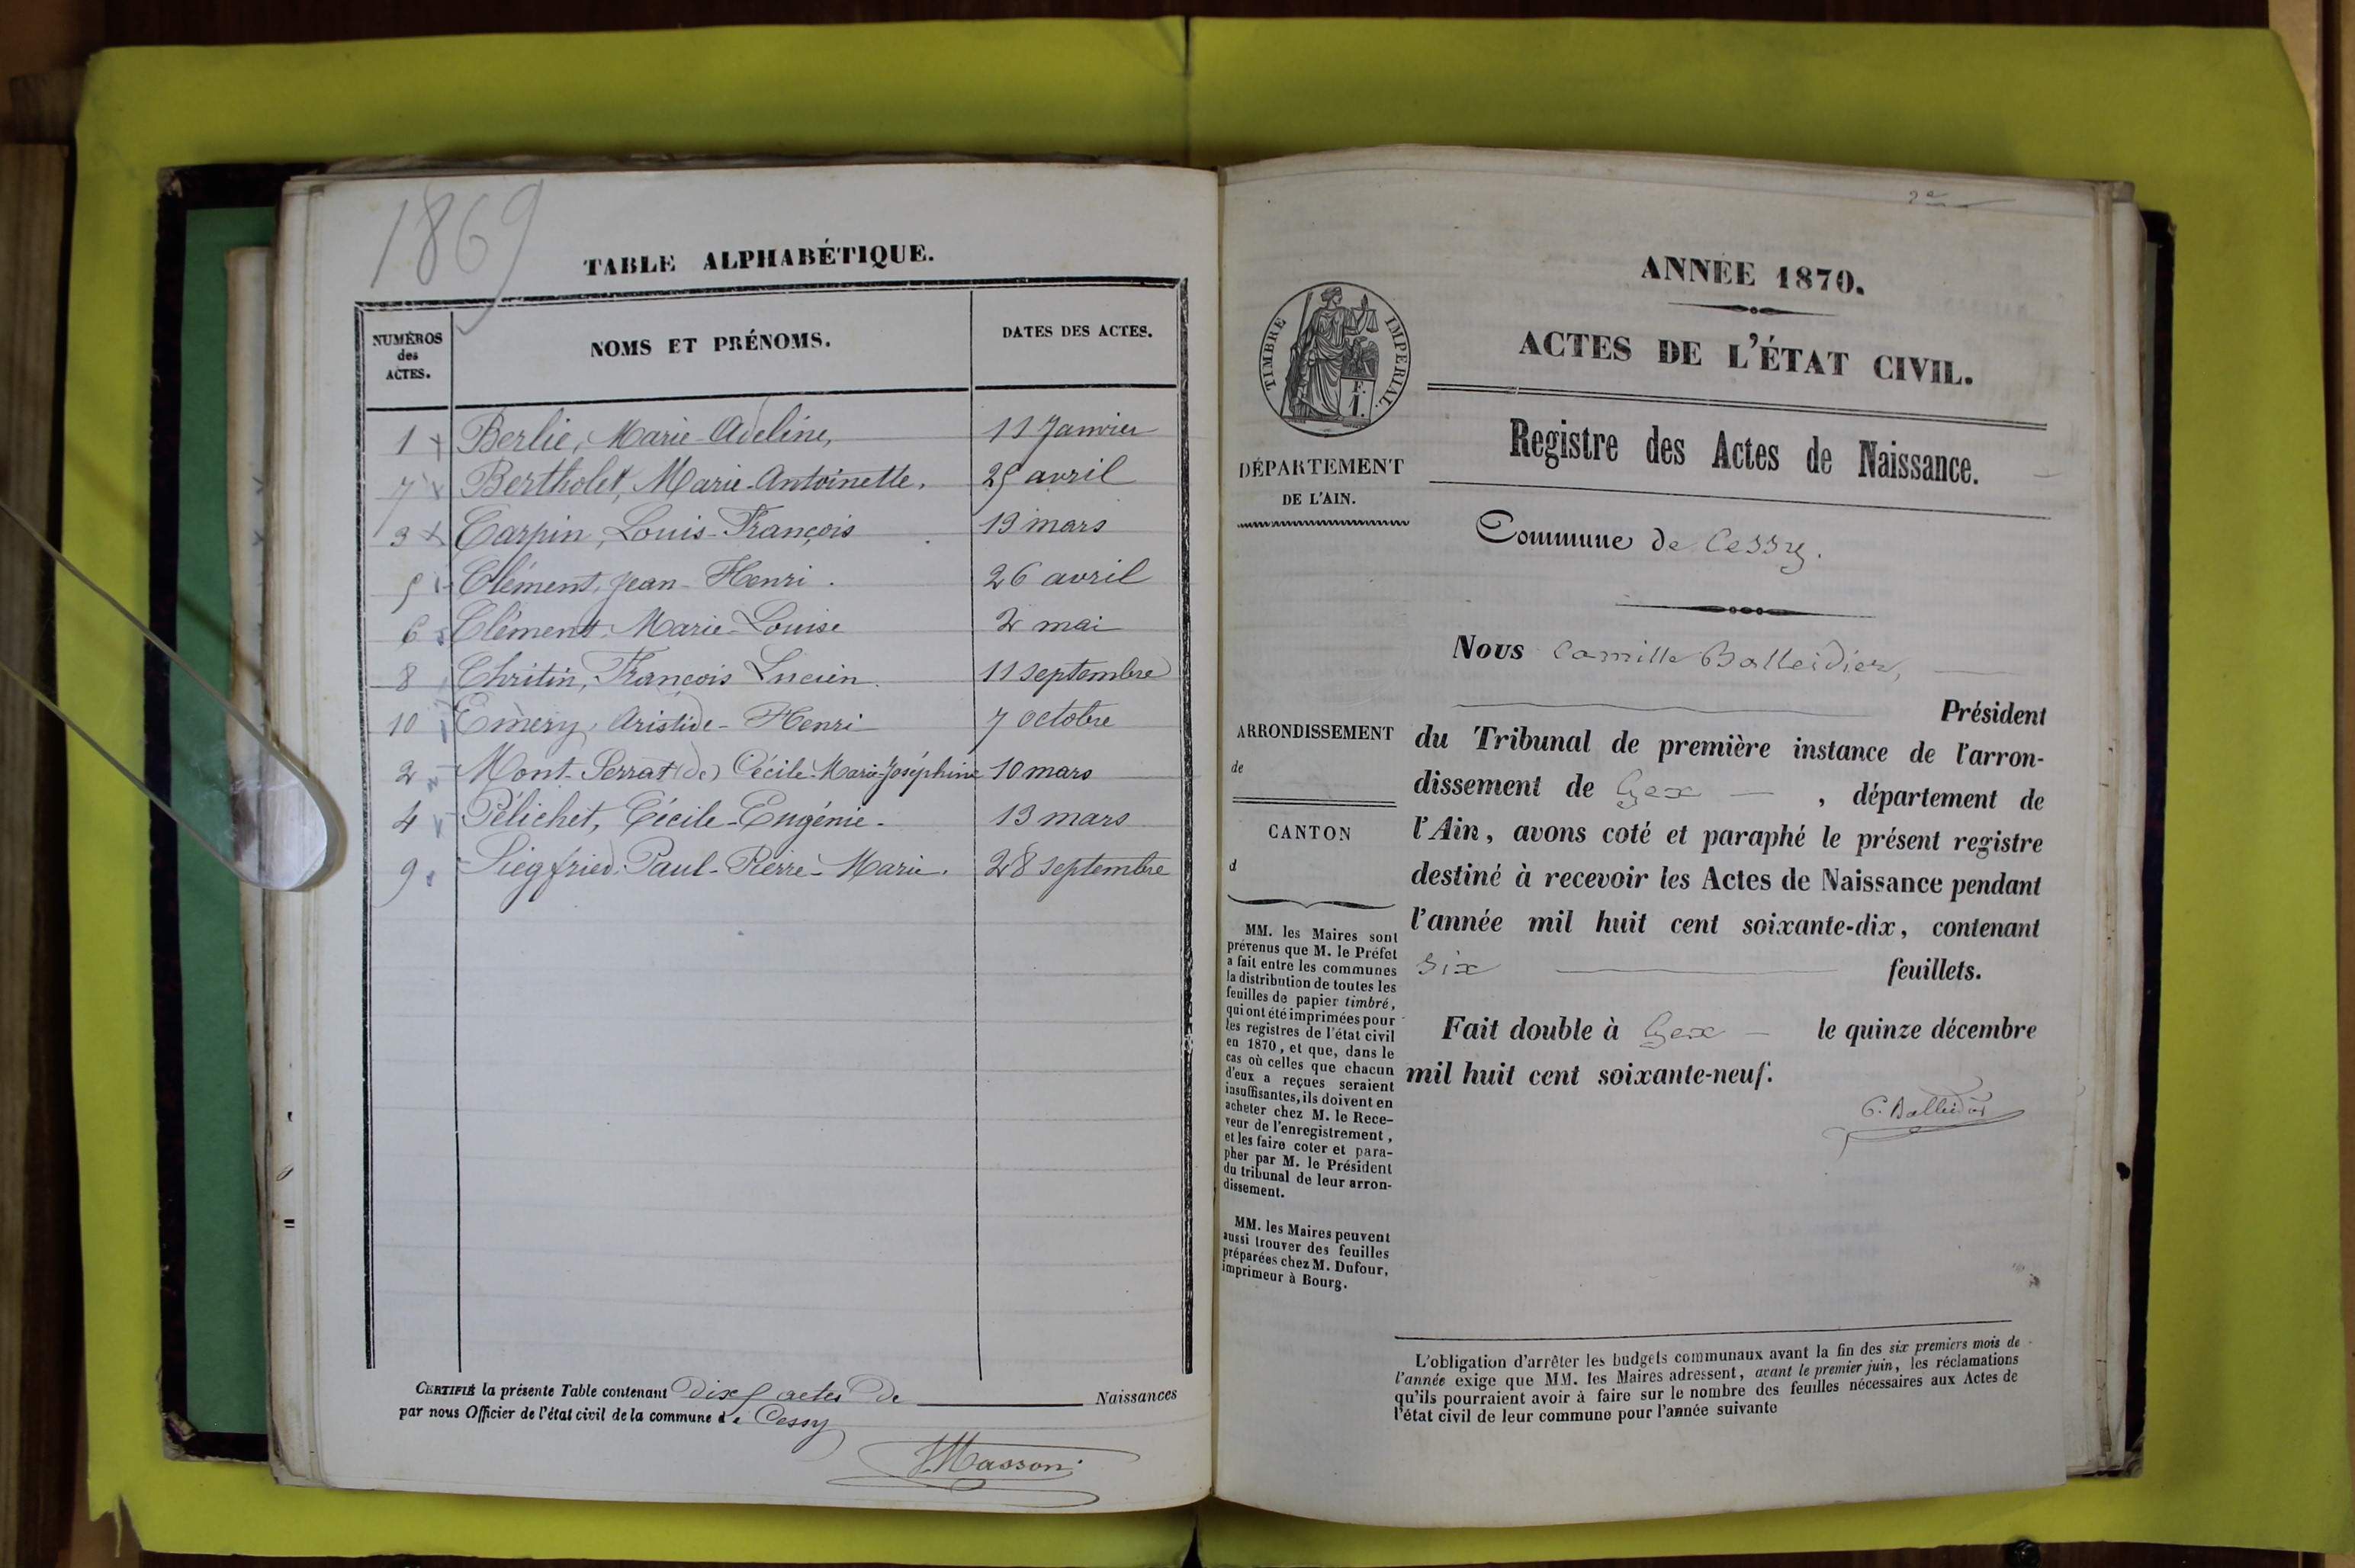 1869
TABLE ALPHABÉTIQUE.
NUMÉROS des ACTES. NOMS ET PRÉNOMS. DATES DES ACTES.
1 Berlie, Marie-Adeline, 11 Janvier
7 Bertholet, Marie-Antoinette. 25 avril
3 Carpin, Louis-François 13 mars
5 Clément, Jean-Henri. 26 avril
6 Clément, Marie-Louise 2 mai
8 Christin, François Lucien. 11 septembre
10 Emery, Aristide-Henri 7 octobre
2 Mont-Serrat (de) Cécile-Marie-Joséphine 10 mars
4 Pélichet, Cécile-Eugénie. 13 mars
9 Siegfried Paul-Pierre-Marie. 28 septembre
CERTIFIÉ la présente Table contenant Dix actes De Naissances
par nous Officier de l'état civil de la commune de Cessy
Masson
2e
ANNÉE 1870.
ACTES DE L'ÉTAT CIVIL.
TIMBRE IMPERIAL
Registre des Actes de Naissance.
DÉPARTEMENT
DE L'AIN.
Commune de Cessy.
Nous Camille Balleidier,
Président
du Tribunal de première instance de l'arron-
dissement de Gex, département de
l'Ain, avons coté et paraphé le présent registre
destiné à recevoir les Actes de Naissance pendant
l'année mil huit cent soixante-dix, contenant
six feuillets.
Fait double à Gex le quinze décembre
mil huit cent soixante-neuf.
C. Balleidier
ARRONDISSEMENT
de
CANTON
d
MM. les Maires sont
prévenus que M. le Préfet
a fait entre les communes
la distribution de toutes les
feuilles de papier timbré,
qui ont été imprimées pour
les registres de l'état civil
en 1870, et que, dans le
cas où celles que chacun
d'eux a reçues seraient
insuffisantes, ils doivent en
acheter chez M. le Rece-
veur de l'enregistrement,
et les faire coter et para-
pher par M. le Président
du tribunal de leur arron-
dissement.
MM. les Maires peuvent
aussi trouver des feuilles
préparées chez M. Dufour,
imprimeur à Bourg.
L'obligation d'arrêter les budgets communaux avant la fin des six premiers mois de
l'année exige que MM. les Maires adressent, avant le premier juin, les réclamations
qu'ils pourraient avoir à faire sur le nombre des feuilles nécessaires aux Actes de
l'état civil de leur commune pour l'année suivante